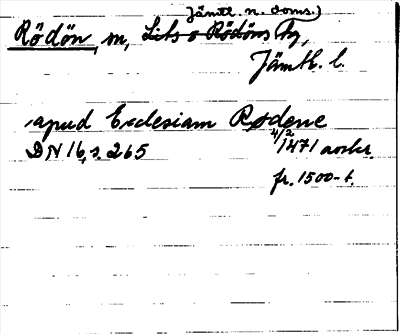 Jämtl. n. doms.)
Rödön, sn, Lits o Rödöns tg,
Jämtl. l.
apud Ecclesiam Rødene
DN 16, s. 265 4/2 1471 avskr.
fr. 1500-t.